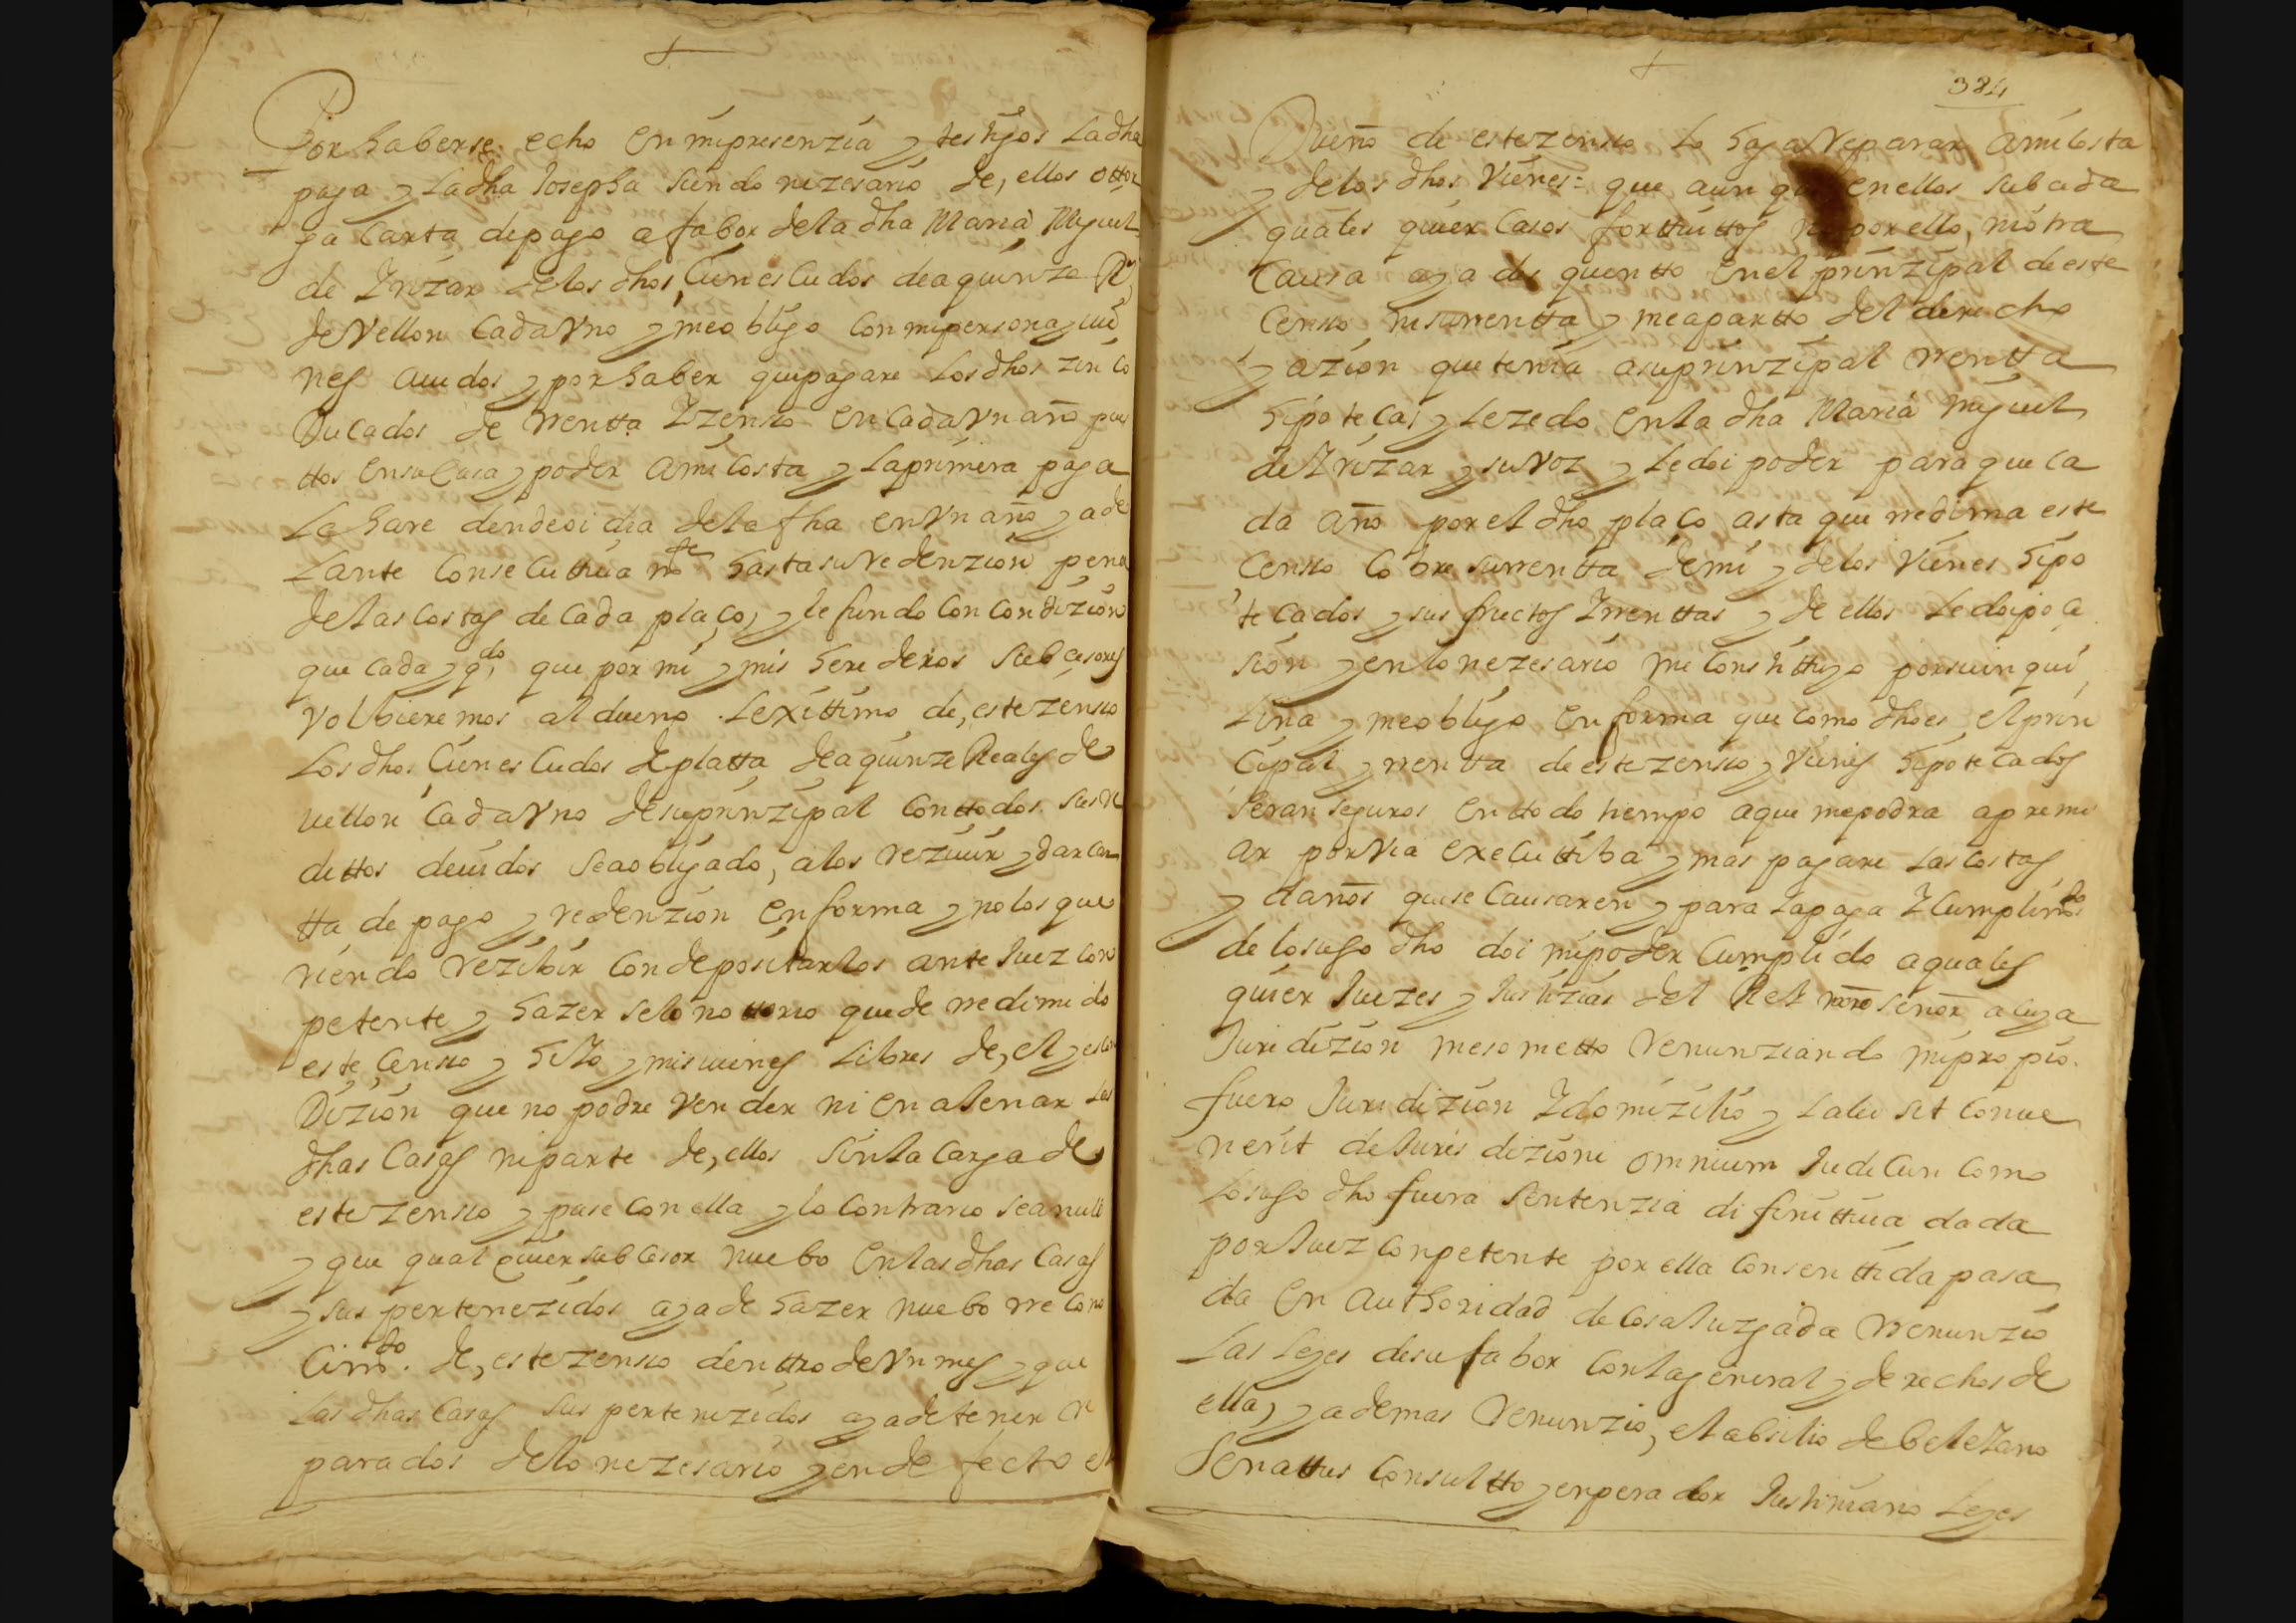 Por haberse echo en mi presenzia y testigos la dha
paga y la dha Josepha siendo nezesario de, ellos ottor
ga carta de pago a fabor de la dha Maria Miguel
de Irizar de los dhos cien escudos de a quinze R,
de vellon cada vno y me obligo con mi persona y vie
nes auidos y por haber que pagare los dhos zinco
Ducados de rrentta y zenso en cada vn año pues
ttos en su casa y poder a mi costa y la primera paga
la hare dende oi dia de la fha en vn año y ade
lante consecuttiua mte hasta su redenzion pena
de las costas de cada plaço, y le fundo con condizion
que cada y qdo, que por mi y mis herederos subcesores
volbieremos al dueno lexittimo de, este zenso
los dhos cien escudos de platta de a quinze Reales de
vellon cada vno de su prinzipal con ttodos sus re
dittos deuidos sea obligado, a los reziuir y dar car
tta de pago y redenzion en forma y no los que
riendo rezibir con depositarlos ante Juez con
petente y hazer selo nottorio quede rredimido
este censo y hilo y mis uienes libres de, el y es con
Dizion que no podre vender ni enalenar las
dhas casas ni parte de, ellos sin la carga de
este zenso y pase con ella y lo contrario sea nulo
y que qual quier subcesor nuebo en las dhas casas
y sus pertenezidos aya de hazer nuebo rrecono
cimto. de, este zenso denttro de vn mes y que
las dhas casas sus pertenezidos aya de tener re
parados de lo nezesario y en defecto el
384
Dueño de este zenso lo haga reparar a mi costa
y de los dhos vienes = que aunque en ellos subcada
quales quier casos forttuittos ni por ello, ni otra
causa aya des quentto en el prinzipal de este
censo ni su rrentta y me apartto del derecho
y azion que tenia a su prinzipal rrentta
hipotecas y le zedo en la dha Maria Miguel
de Irizar y su voz y le doi poder para que ca
da año por el dho plaço asta que rredima este
censo cobre su rrentta de mi y de los vienes hipo
tecados y sus fructos y rrenttas y de ellos le doi poce
sion y en lo nezesario me constittuyo por su inqui
lina y me obligo en forma que como dho es el prin
cipal y rrentta de este zenso y vienes hipotecados
seran seguros en ttodo tiempo a que me podra apremi
ar por via executtiba y mas pagare las costas
y daños que se causaren y para la paga y cumplimto
de lo suso dho doi mi poder cumplido a quales
quier Juezes y Justizias del Rei nro señor a cuya
Juridizion me somotto renunziando mi propio
fuero Juridizion y domizilio y la lei sit conue
nerit de Juris dizione omnium Judicun como
lo suso dho fuera sentenzia difinittiua dada
por Juez conpetente por ella consenttida pasa
da en authoridad de cosa Juzgada rrenunzio
las leyes de su fabor con la general y derechos de
ella, y ademas renunzio, el absilio de beleZano
Senattus consultto y enperador Justiniano leyes